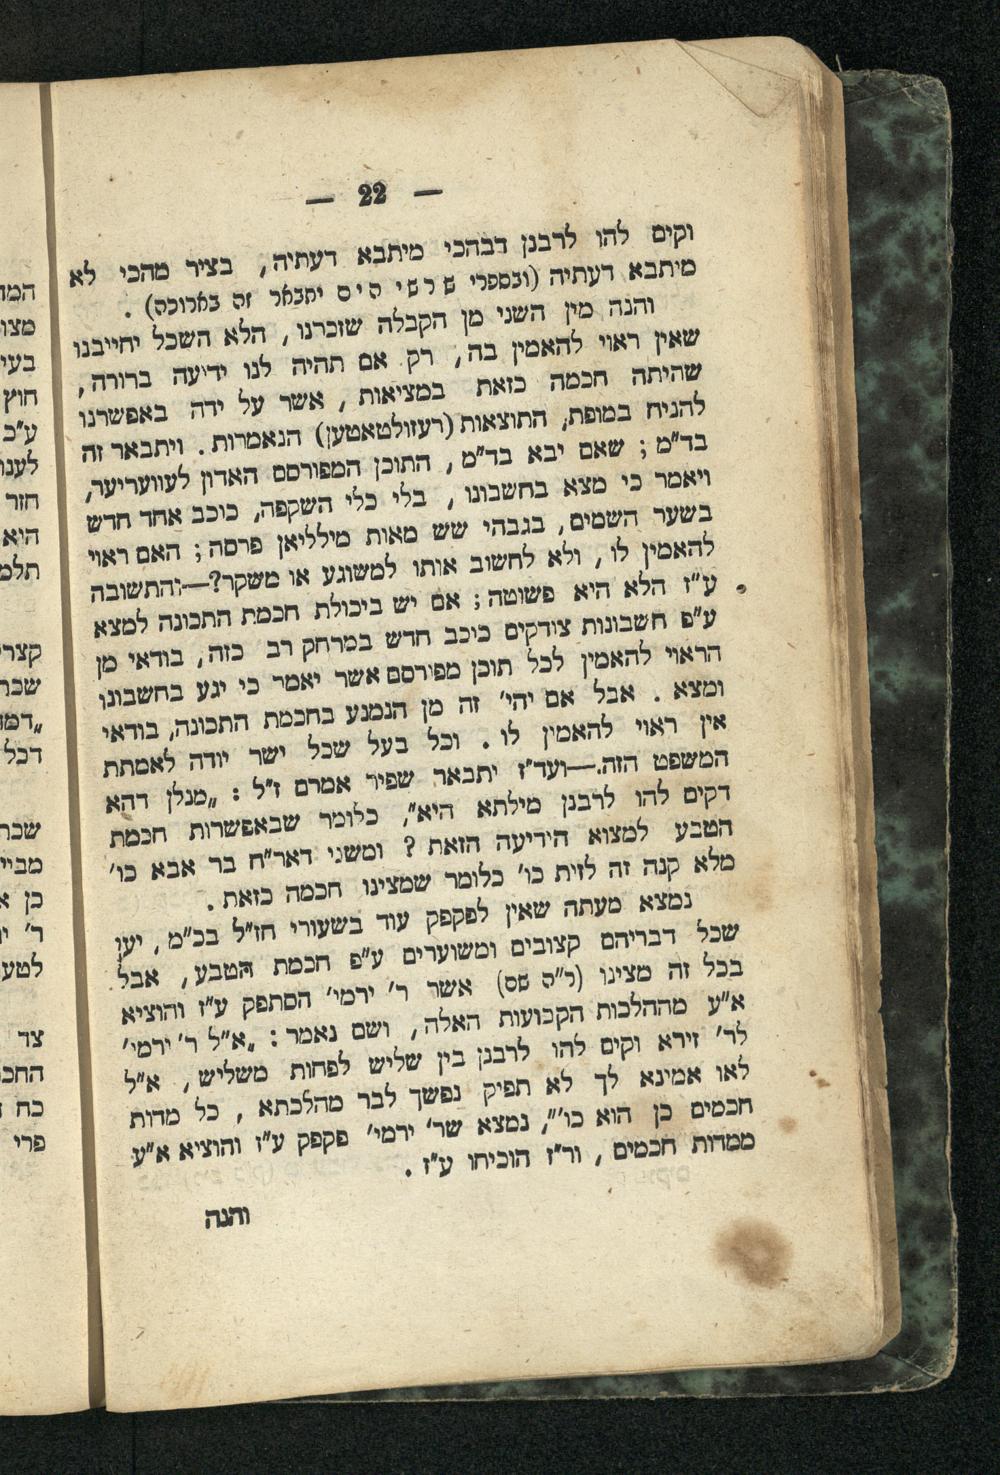 — 22 —
וקים להו לרבנן דבהכי מיתבא דעתיה, בציר מהכי לא
מיתבא דעתיה (ובספרי שרשי הים יתבאר זה בארוכה) .
והנה מין השני מן הקבלה שזכרנו, הלא השכל יחייבנו
שאין ראוי להאמין בה, רק אם תהיה לנו ידיעה ברורה,
שהיתה חכמה כזאת במציאות, אשר על ידה באפשרנו
להניח במופת, התוצאות (רעזולטאטען) הנאמרות. ויתבאר זה
בד״מ; שאם יבא בד״מ, התוכן המפורסם האדון לעוועריער,
ויאמר כי מצא בחשבונו, בלי כלי השקפה, כוכב אחד חדש
בשער השמים, בגבהי שש מאות מילליאן פרסה; האם ראוי
להאמין לו, ולא לחשוב אותו למשוגע או משקר?—והתשובה
ע״ז הלא היא פשוטה; אם יש ביכולת חכמת התכונה למצא
ע״פ חשבונות צודקים כוכב חדש במרחק רב כזה, בודאי מן
הראוי להאמין לכל תוכן מפורסם אשר יאמר כי יגע בחשבונו
ומצא. אבל אם יהי׳ זה מן הנמנע בחכמת התכונה, בודאי
אין ראוי להאמין לו. וכל בעל שכל ישר יודה לאמתת
המשפט הזה.—ועד״ז יתבאר שפיר אמרם ז״ל: „מנלן דהא
דקים להו לרבנן מילתא היא״, כלומר שבאפשרות חכמת
הטבע למצוא הידיעה הזאת? ומשני דאר״ח בר אבא כו׳
מלא קנה זה לזית כו׳ כלומר שמצינו חכמה כזאת.
נמצא מעתה שאין לפקפק עוד בשעורי חז״ל בכ״מ, יען
שכל דבריהם קצובים ומשוערים ע״פ חכמת הטבע, אבל
בכל זה מצינו (ר״ה שם) אשר ר׳ ירמי׳ הסתפק ע״ז והוציא
א״ע מההלכות הקבועות האלה, ושם נאמר: „א״ל ר׳ ירמי׳
לר׳ זירא וקים להו לרבנן בין שליש לפחות משליש, א״ל
לאו אמינא לך לא תפיק נפשך לבר מהלכתא, כל מדות
חכמים כן הוא כו׳״, נמצא שר׳ ירמי׳ פקפק ע״ז והוציא א״ע
ממדות חכמים, ור״ז הוכיחו ע״ז.
והנה